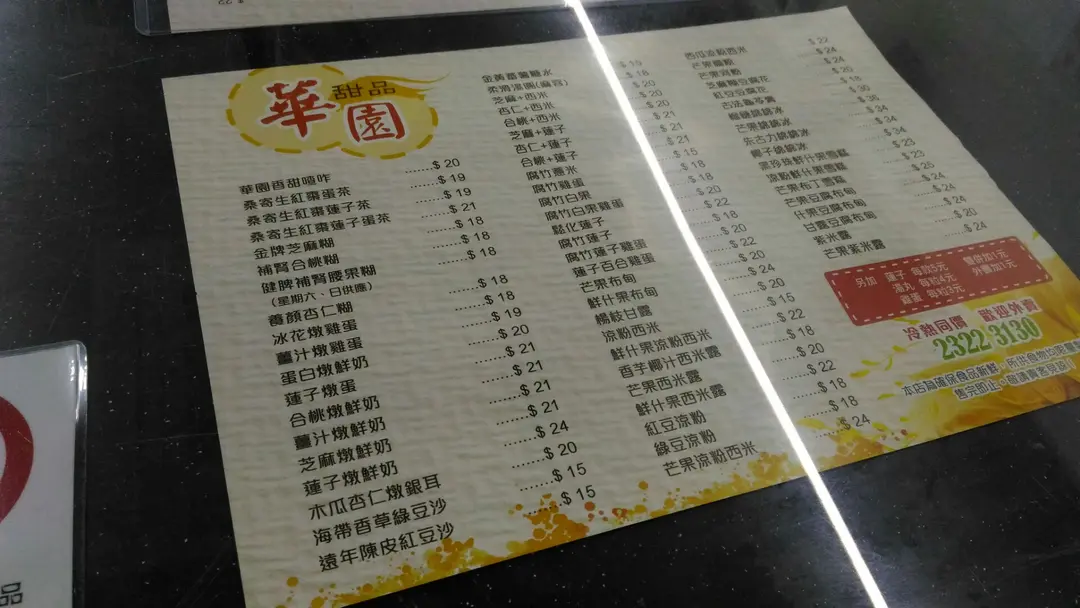 華園
甜品
華園香甜喳咋 ......$ 20
桑寄生紅棗蛋茶 ......$ 19
桑寄生紅棗蓮子茶 ......$ 19
桑寄生紅棗蓮子蛋茶 ......$ 21
金牌芝麻糊 ......$ 18
補腎合桃糊 ......$ 18
健脾補腎腰果糊 ......$ 18
(星期六、日供應)
養顏杏仁糊 ......$ 18
冰花燉雞蛋 ......$ 18
薑汁燉雞蛋 ......$ 19
蛋白燉鮮奶 ......$ 20
蓮子燉蛋 ......$ 21
合桃燉鮮奶 ......$ 21
薑汁燉鮮奶 ......$ 21
芝麻燉鮮奶 ......$ 21
蓮子燉鮮奶 ......$ 24
木瓜杏仁燉銀耳 ......$ 20
海帶香草綠豆沙 ......$ 15
遠年陳皮紅豆沙 ......$ 15
金黃番薯糖水 $ 15
柔滑湯圓(麻蓉) $ 18
芝麻+西米 $ 20
杏仁+西米 $ 20
合桃+西米 $ 20
芝麻+蓮子 $ 21
杏仁+蓮子 $ 21
合桃+蓮子 $ 21
腐竹薏米 $ 15
腐竹雞蛋 $ 18
腐竹白果 $ 18
腐竹白果雞蛋 $ 20
鬆化蓮子 $ 22
腐竹蓮子 $ 18
腐竹蓮子雞蛋 $ 20
蓮子百合雞蛋 $ 22
芒果布甸 $ 20
鮮什果布甸 $ 24
楊枝甘露 $ 20
涼粉西米 $ 15
鮮什果涼粉西米 $ 22
香芋椰汁西米露 $ 18
芒果西米露 $ 20
鮮什果西米露 $ 22
紅豆涼粉 $ 18
綠豆涼粉 $ 18
芒果涼粉西米 $ 24
西瓜涼粉西米 $ 22
$ 24
芒果涼粉 $ 24
芝麻糊豆腐花 $ 20
紅豆豆腐花 $ 18
古法龜苓膏 $ 30
$ 30
$ 34
$ 34
$ 34
黑珍珠鮮什果雪糕 $ 23
涼粉鮮什果雪糕 $ 23
芒果布丁雪糕 $ 25
芒果豆腐布甸 $ 24
什果豆腐布甸 $ 24
甘露豆腐布甸 $ 24
紫米露 $ 20
芒果紫米露 $ 24
另加 蓮子 每款5元 雙併加1元
湯丸 每粒4元 外賣加1元
雞蛋 每粒3元
冷熱同價 歡迎外賣
2322 3130
售完即止